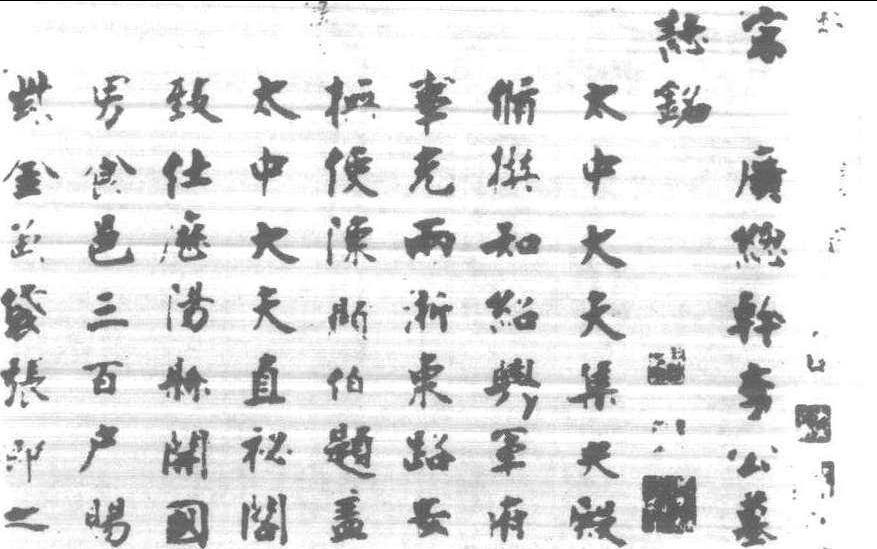 宋 廣惣幹李公墓
誌銘
太中大夫集英殿
脩撰知紹興軍府
事充兩浙東路安
撫使陳昉伯題盖
太中大夫直祕閣
致仕歷陽縣開國
男食邑三百户賜
紫金魚袋張即之